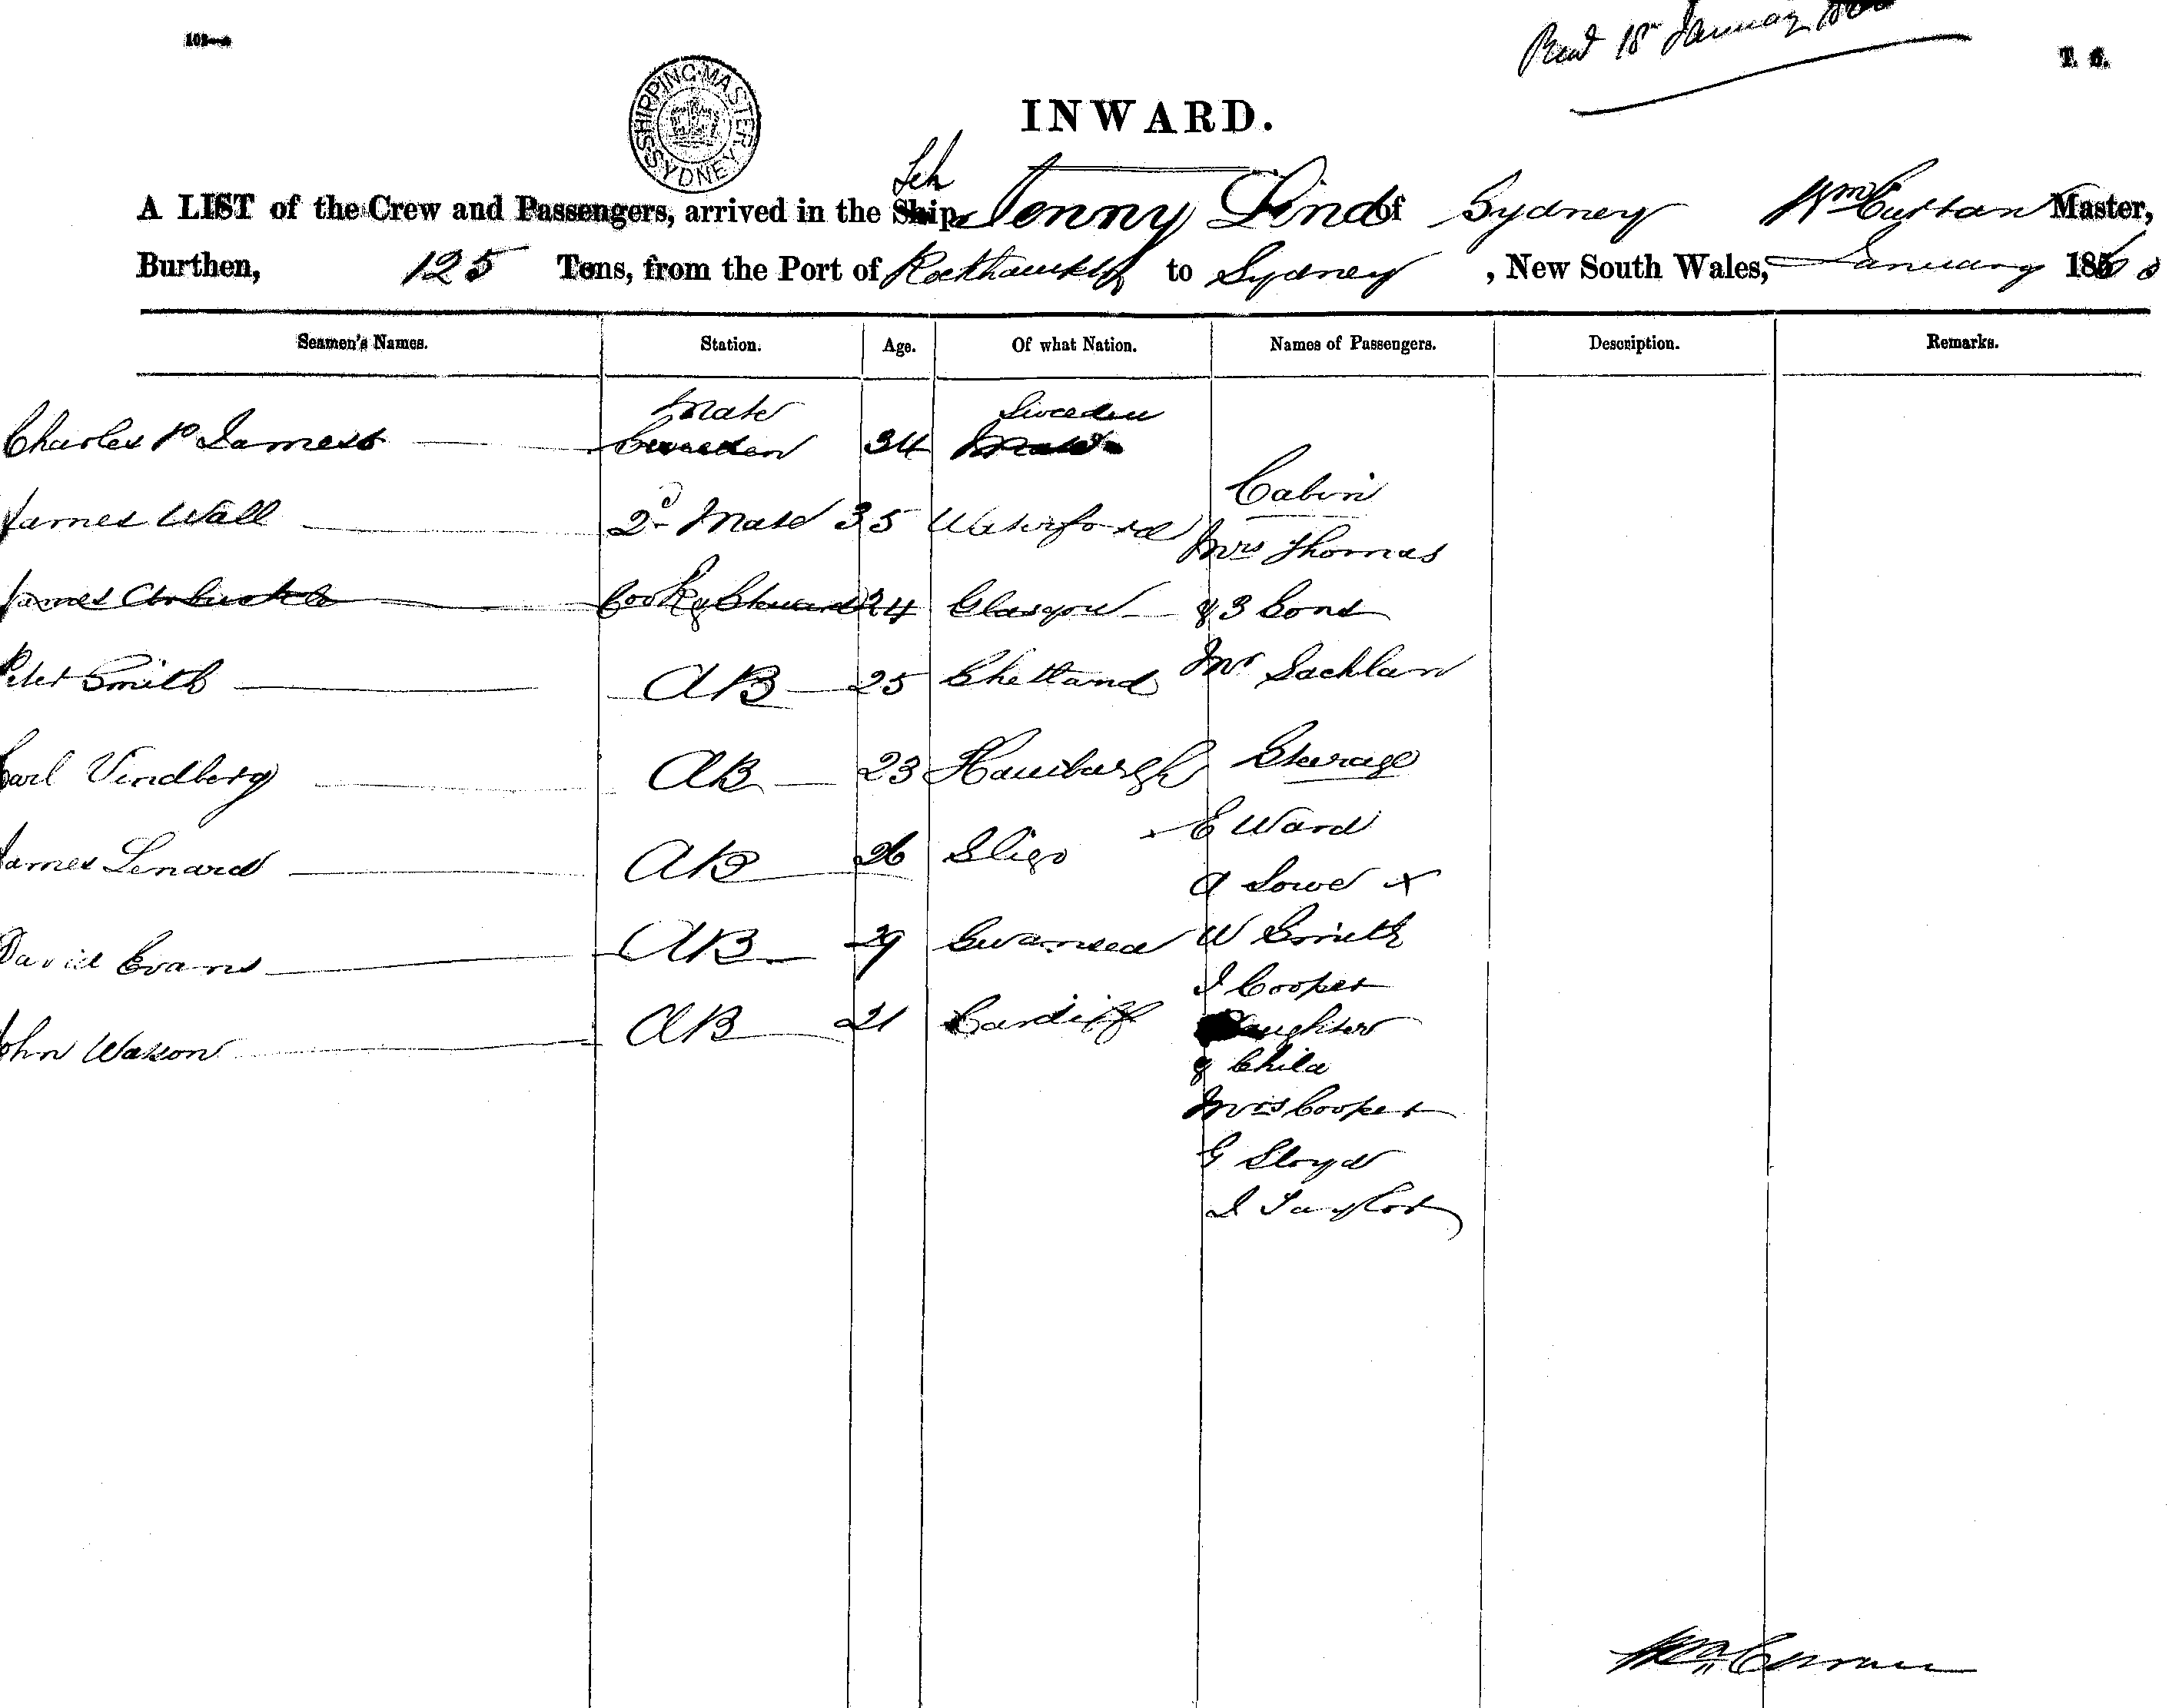 18 January
T. S.
SHIPPING MASTER SYDNEY
INWARD.
Sch
A LIST of the Crew and Passengers, arrived in the Ship Jenny Lind of Sydney Wm Master,
Burthen, 125 Tons, from the Port of to Sydney, New South Wales, January 1860
Seamen's Names. Station. Age. Of what Nation. Names of Passengers. Description. Remarks.
Mate Sweden
Charles P 34
Cabin
James Wall 2d Mate 35 Waterford
Mrs Thomas
James Arbuckle Cook & Steward 24 Glasgow & 3 Sons
Peter Smith AB 25 Shetland Mr Lachlan
Carl Vindberg AB 23 Hamburgh Steerage
E Ward
James Lenard AB 26 Sligo
A Lowe x
David Evans AB 29 Swansea W Smith
J Cooper
John Watson AB 21 Cardiff Daughter
& Child
Mrs Cooper
G Lloyd
J Taylor
Wm Curran